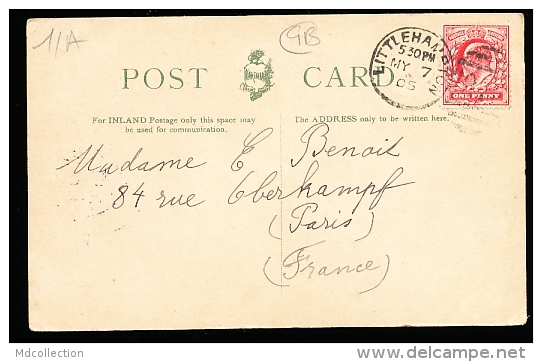 1/A
GB
POST CARD
LITTLEHAMPTON
5 30 PM
MY 7
05
ONE PENNY
For INLAND Postage only this space may
be used for communication.
The ADDRESS only to be written here.
Madame E Benoit
84 rue Oberkampf
(Paris)
(France)
Mdcollection
delcampe.net